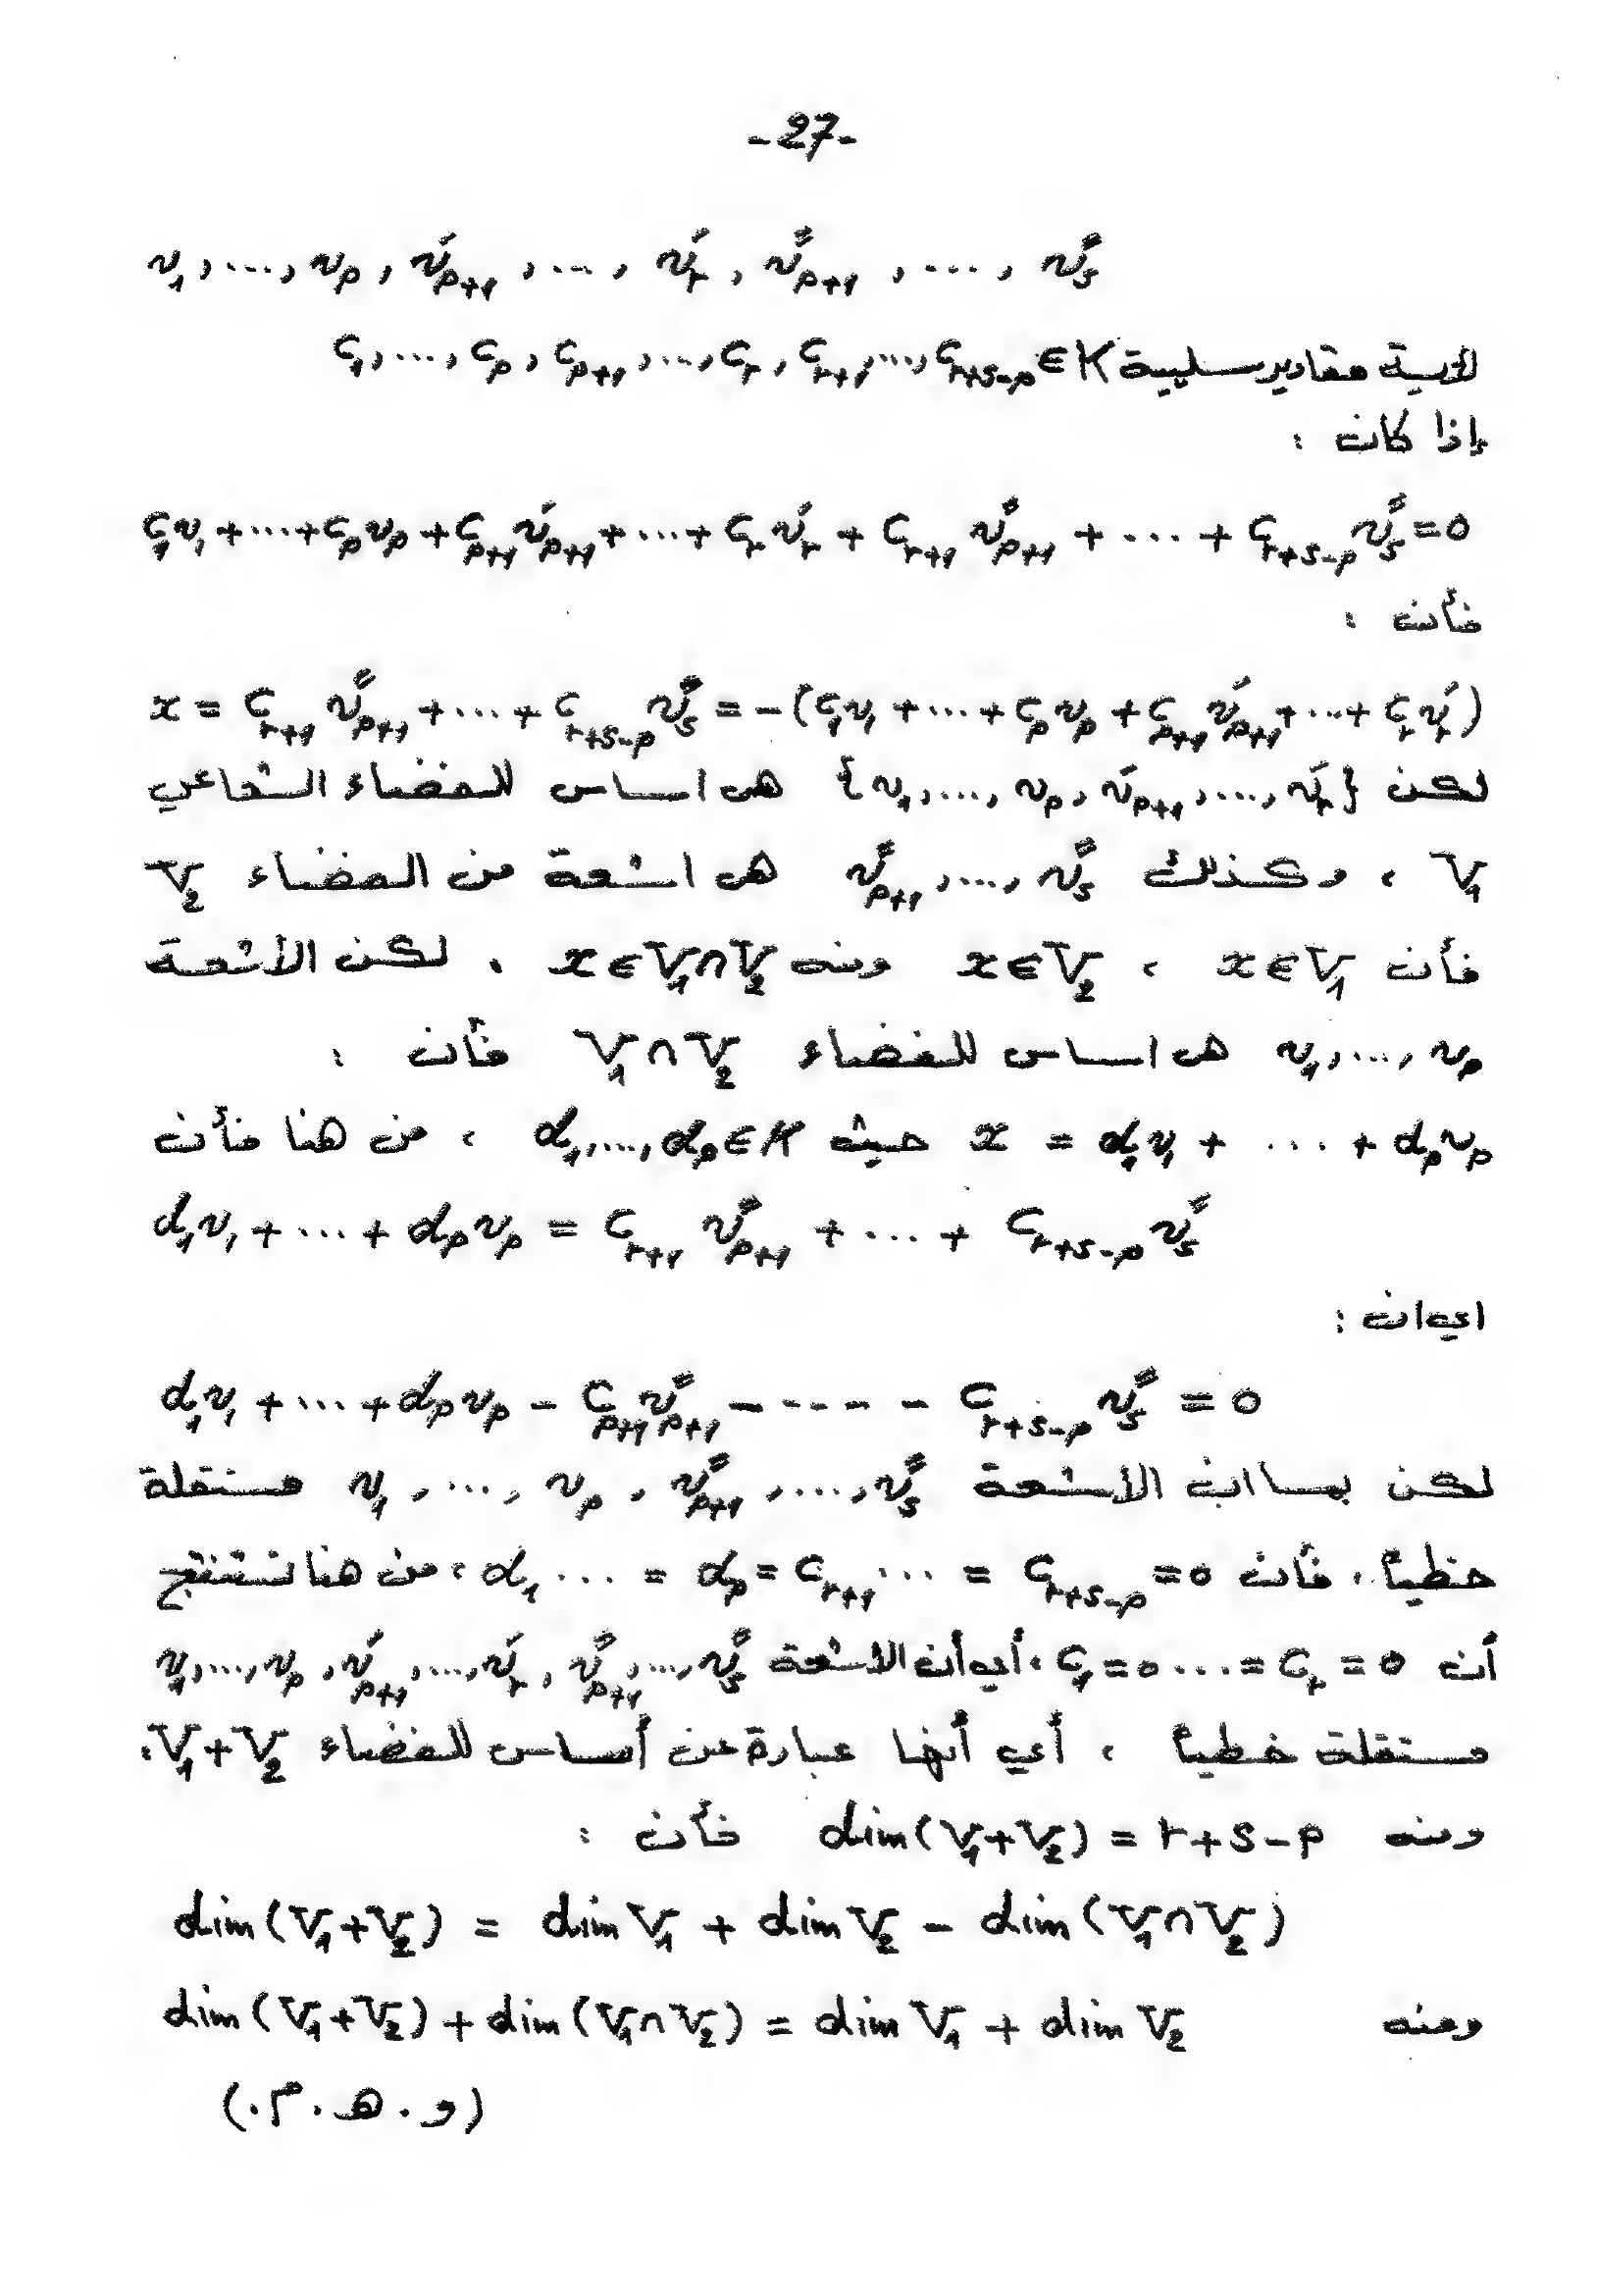 -27-
v₁, ..., vₚ, v′ₚ₊₁, ..., v′ᵣ, v″ₚ₊₁, ..., v″ₛ
لأية مقادير سلمية c₁, ..., cₚ, cₚ₊₁, ..., cᵣ, cᵣ₊₁, ..., cᵣ₊ₛ₋ₚ ∈ K
إذا كان :
c₁v₁ + ... + cₚvₚ + cₚ₊₁v′ₚ₊₁ + ... + cᵣv′ᵣ + cᵣ₊₁v″ₚ₊₁ + ... + cᵣ₊ₛ₋ₚv″ₛ = 0
فأن :
x = cᵣ₊₁v″ₚ₊₁ + ... + cᵣ₊ₛ₋ₚv″ₛ = -(c₁v₁ + ... + cₚvₚ + cₚ₊₁v′ₚ₊₁ + ... + cᵣv′ᵣ)
لكن {v₁, ..., vₚ, v′ₚ₊₁, ..., v′ᵣ} هي اساس للفضاء الشعاعي
V₁ ، وكذلك v″ₚ₊₁, ..., v″ₛ هي اشعة من الفضاء V₂
فأن x ∈ V₁ ، x ∈ V₂ ومنه x ∈ V₁∩V₂ . لكن الأشعة
v₁, ..., vₚ هي اساس للفضاء V₁∩V₂ فأن :
x = d₁v₁ + ... + dₚvₚ حيث d₁, ..., dₚ ∈ K ، من هنا فأن
d₁v₁ + ... + dₚvₚ = cᵣ₊₁v″ₚ₊₁ + ... + cᵣ₊ₛ₋ₚv″ₛ
اي ان :
d₁v₁ + ... + dₚvₚ - cₚ₊₁v″ₚ₊₁ - ---- - cᵣ₊ₛ₋ₚv″ₛ = 0
لكن بما ان الأشعة v₁, ..., vₚ, v″ₚ₊₁, ..., v″ₛ مستقلة
خطياً ، فأن d₁ ... = dₚ = cᵣ₊₁ ... = cᵣ₊ₛ₋ₚ = 0 ، من هنا نستنتج
أن c₁ = 0 ... = cᵣ = 0 ، أي أن الاشعة v₁, ..., vₚ, v′ₚ₊₁, ..., v′ᵣ, v″ₚ₊₁, ..., v″ₛ
مستقلة خطياً ، أي أنها عبارة عن أساس للفضاء V₁+V₂.
ومنه dim(V₁+V₂) = r+s-p فأن :
dim(V₁+V₂) = dim V₁ + dim V₂ - dim(V₁∩V₂)
ومنه dim(V₁+V₂) + dim(V₁∩V₂) = dim V₁ + dim V₂
(و . هـ . م .)